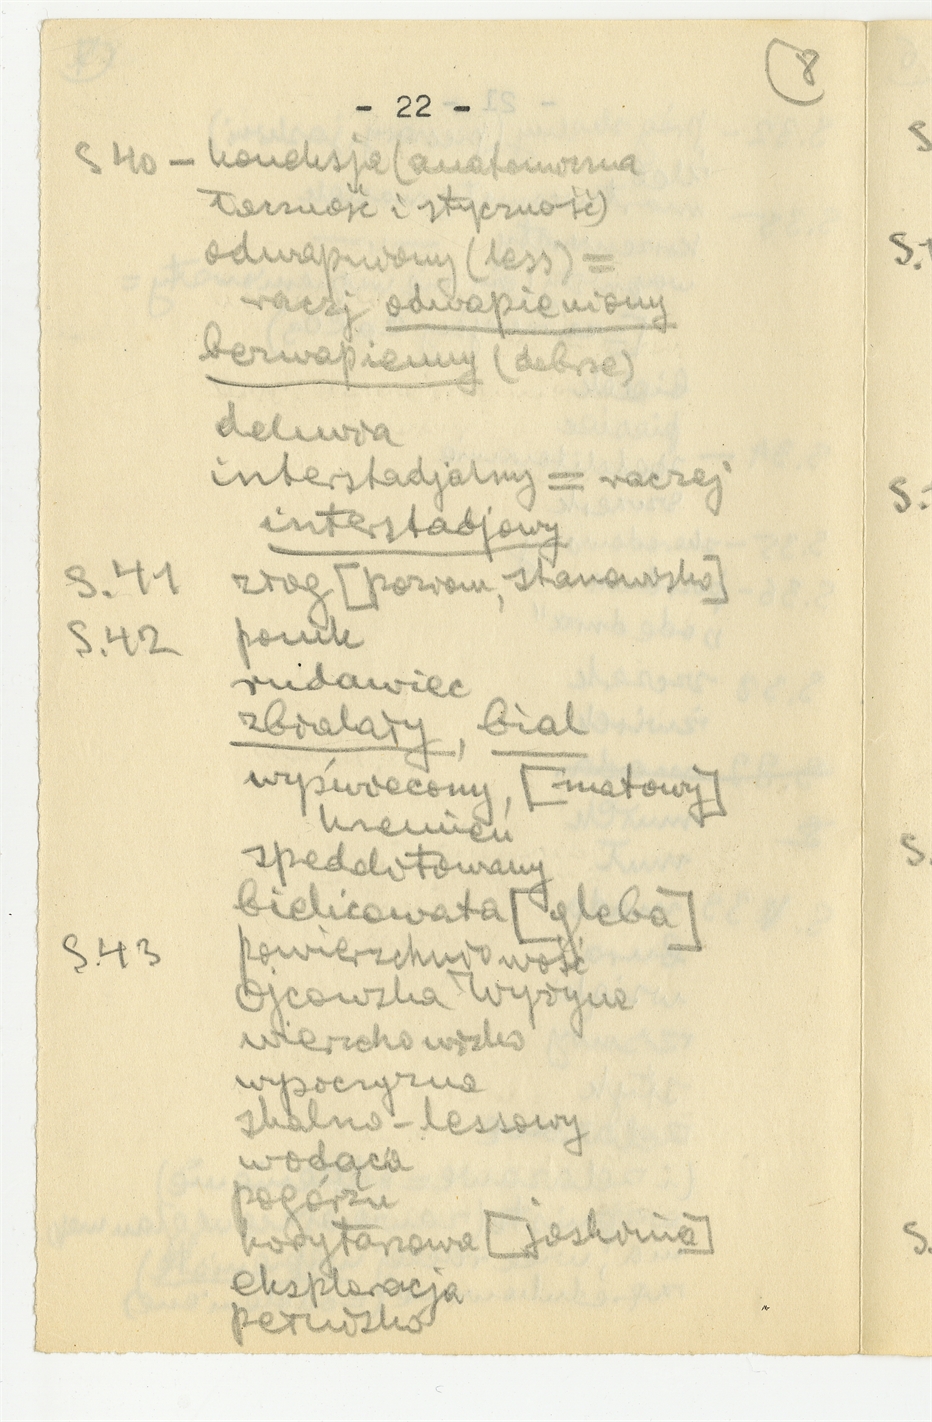 8
- 22 -
S 40 - koneksja (anatomiczna
łączność i styczność)
odwapniony (less) =
raczej odwapieniony
bezwapienny (debrze)
deluvia
interstadjalny = raczej
interstadjowy
S.41 złog [poziom, stanowisko]
S.42
rudawiec
zbielały, biel
wyświecony, [matowy]
krzemień
bielicowata [gleba]
S.43 powierzchniowość
Ojcowska Wyżyna
wierzchowisko
wypoczyna
skalno-lessowy
wodąca
pogórze
korytarzowa [jaskinia]
eksploracja